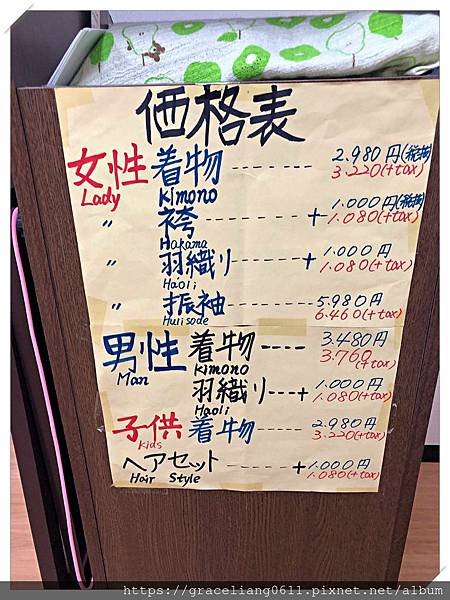 価格表
女性 着物 ------- 2.980円(税抜)
Lady Kimono 3.220(+tax)
〃 袴 ------- +1.000円(税抜)
Hakama 1.080(+tax)
〃 羽織り ------- +1.000円
Haoli 1.080(+tax)
〃 振袖 ------- 5.980円
Hulisode 6.460(+tax)
男性 着物 ---- 3.480円
Man Kimono 3.760(+tax)
羽織り ---+1.000円
Haoli 1.080(+tax)
子供 着物 ------- 2.980円
kids 3.220(+tax)
ヘアセット ------- +1.000円
Hair Style 1.080(+tax)
https://graceliang0611.pixnet.net/album